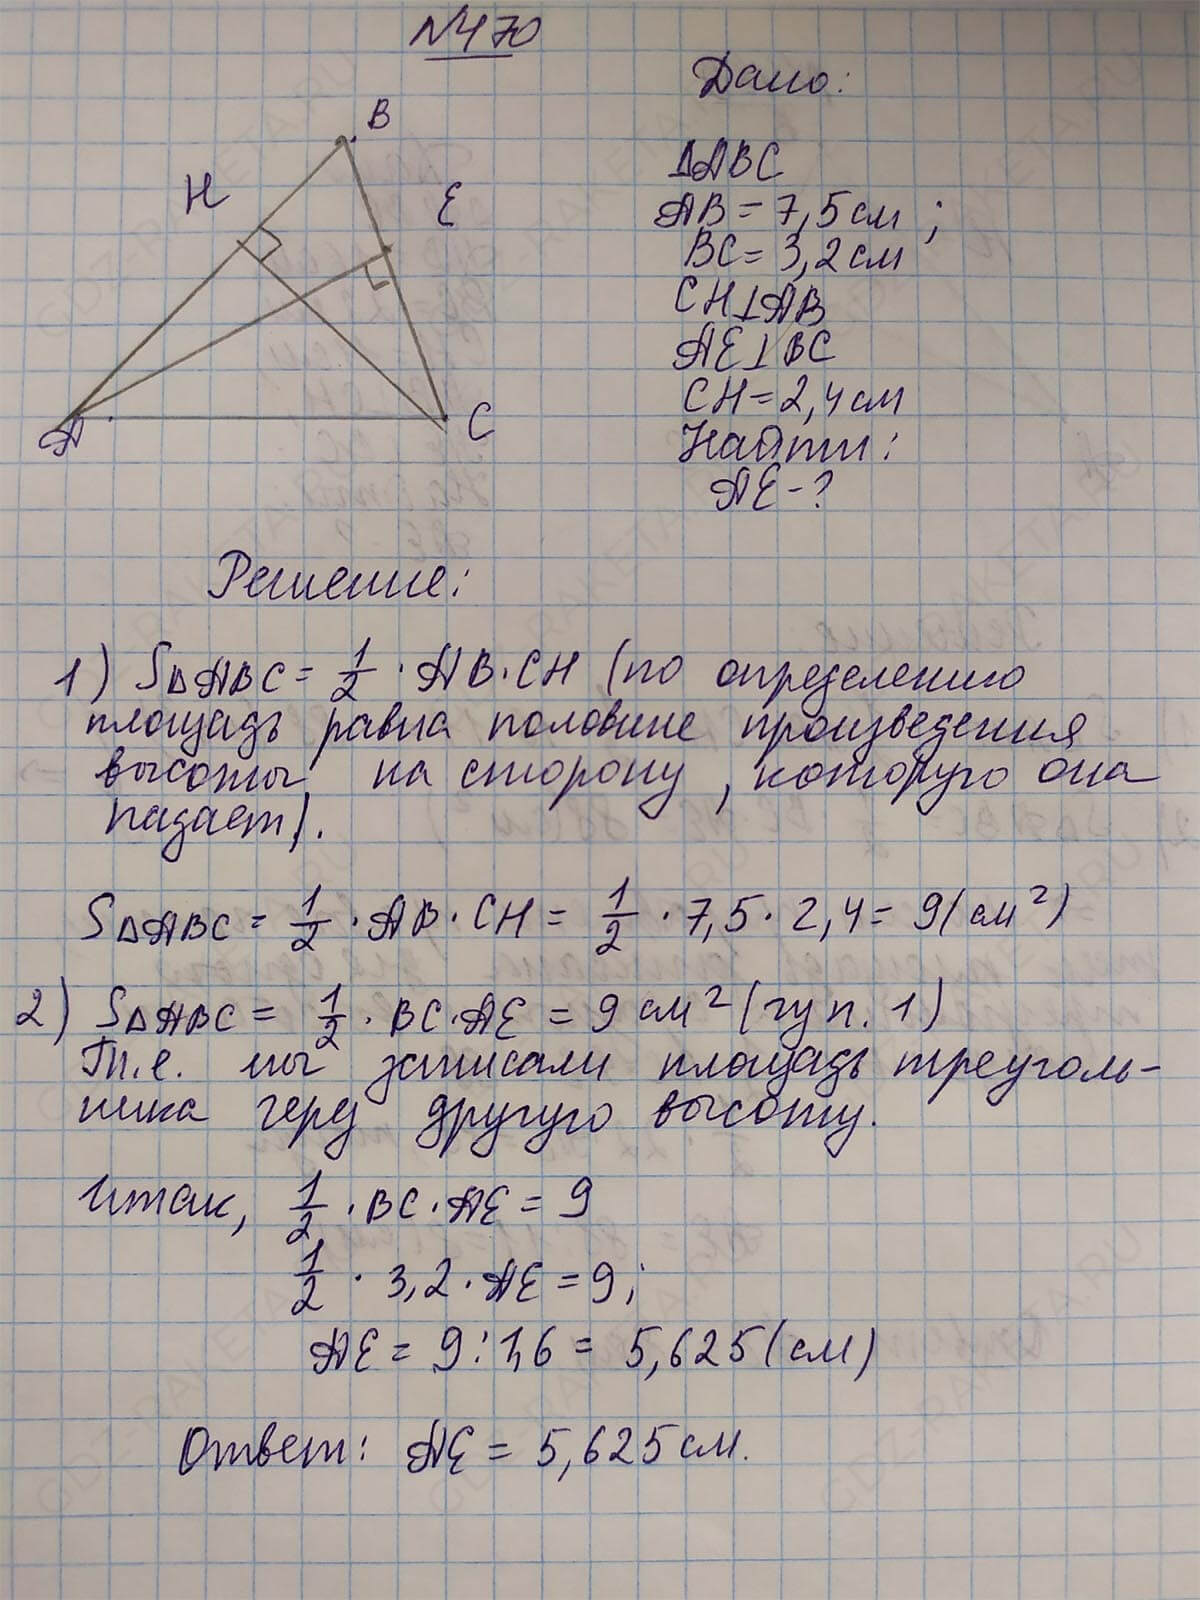 №470
B
H
E
A
C
Дано:
ΔABC
AB = 7,5 см ;
BC = 3,2 см
CH⊥AB
AE⊥BC
CH = 2,4 см
Найти:
AE - ?
Решение:
1) SΔABC = 1/2 · AB · CH (по определению
площадь равна половине произведения
высоты на сторону, которую она
падает).
SΔABC = 1/2 · AB · CH = 1/2 · 7,5 · 2,4 = 9 (см²)
2) SΔABC = 1/2 · BC · AE = 9 см² (из п. 1)
Т.е. мы записали площадь треуголь-
ника через другую высоту.
Итак, 1/2 · BC · AE = 9
1/2 · 3,2 · AE = 9;
AE = 9 : 1,6 = 5,625 (см)
Ответ: AE = 5,625 см.